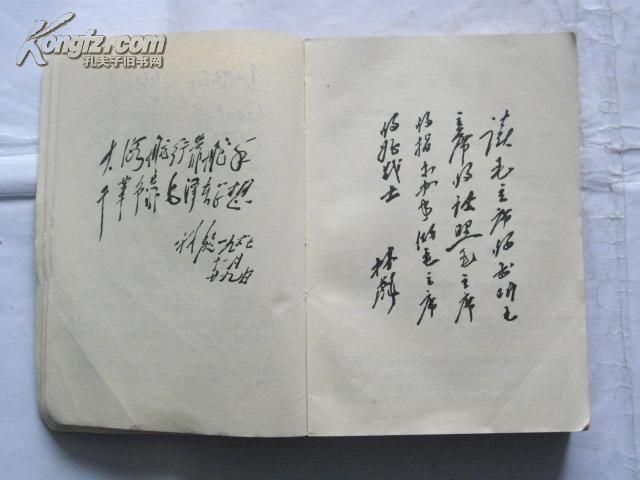 Kongfz.com
孔夫子旧书网
大海航行靠舵手
干革命靠毛泽东思想
林彪 一九六七
十一月
廿九日
读毛主席的书听毛
主席的话照毛主席
的指示办事做毛主席
的好战士
林彪